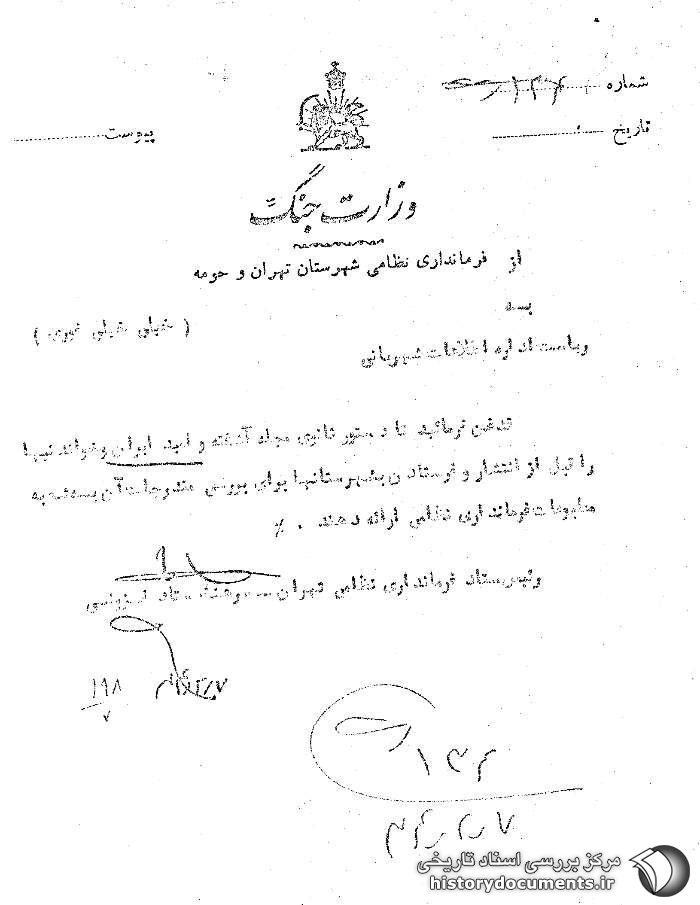 شماره
تاریخ
پیوست
وزارت جنگ
از فرمانداری نظامی شهرستان تهران و حومه
به
( خیلی خیلی فوری )
ریاست اداره اطلاعات شهربانی
قدغن فرمائید تا دستور ثانوی مجله آشفته و امید ایران وخواندنیها
را قبل از انتشار و فرستادن بشهرستانها برای بررسی مندرجات آن بسه به
مطبوعات فرمانداری نظامی ارائه دهند . ٪
رئیس ستاد فرمانداری نظامی تهران ـ سرهنگ ستاد
۱۹۸
۷
۱۳۲
مرکز بررسی اسناد تاریخی
historydocuments.ir